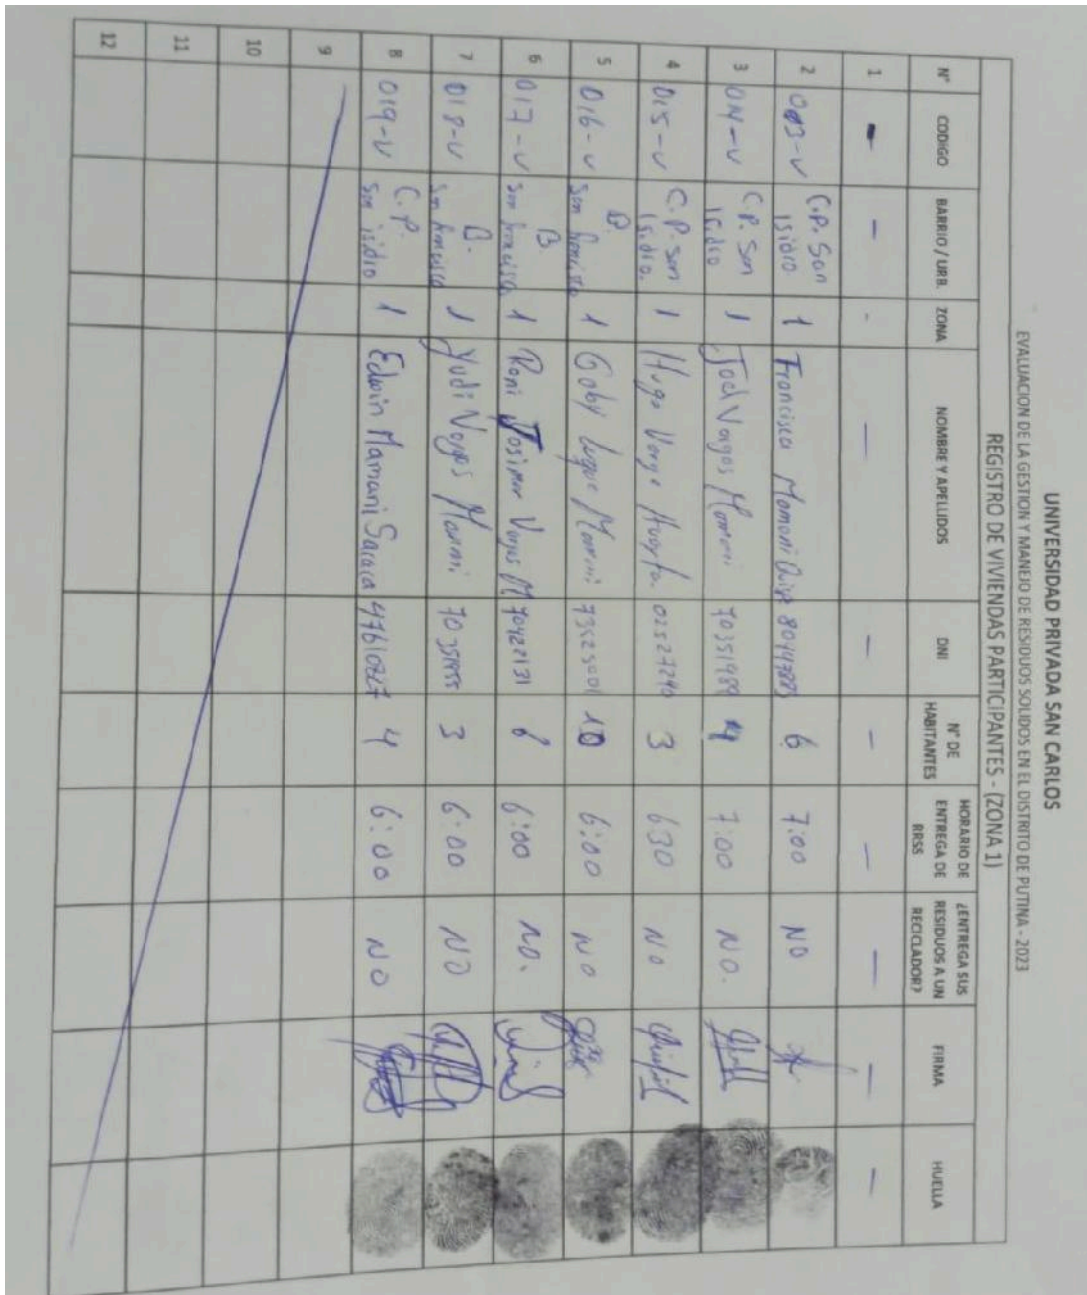 UNIVERSIDAD PRIVADA SAN CARLOS
EVALUACION DE LA GESTION Y MANEJO DE RESIDUOS SOLIDOS EN EL DISTRITO DE PUTINA - 2023
REGISTRO DE VIVIENDAS PARTICIPANTES - (ZONA 1)
N° CODIGO BARRIO / URB. ZONA NOMBRE Y APELLIDOS DNI N° DE HABITANTES HORARIO DE ENTREGA DE RRSS ¿ENTREGA SUS RESIDUOS A UN RECICLADOR? FIRMA HUELLA
1 - - - - - - - - - -
2 C.P. San Isidro 1 Francisca Mamani 6 7:00 NO
3 014-V C.P. San Isidro 1 Joel Vargas Mamani 70351989 4 7:00 NO.
4 015-V C.P San Isidro. 1 Hugo Varga 02527240 3 630 NO
5 016-V B. San Francisco 1 Goby Luque Mamani 73525001 10 6:00 NO
6 017-V B. San francisco 1 Roni Josimar Vargas M 70422131 6 6:00 NO.
7 018-V B. San francisco 1 Yudi Vargas Mamani 3 6:00 NO
8 019-V C.P. San isidro 1 Edwin Mamani Sacaca 4 6:00 NO
9
10
11
12